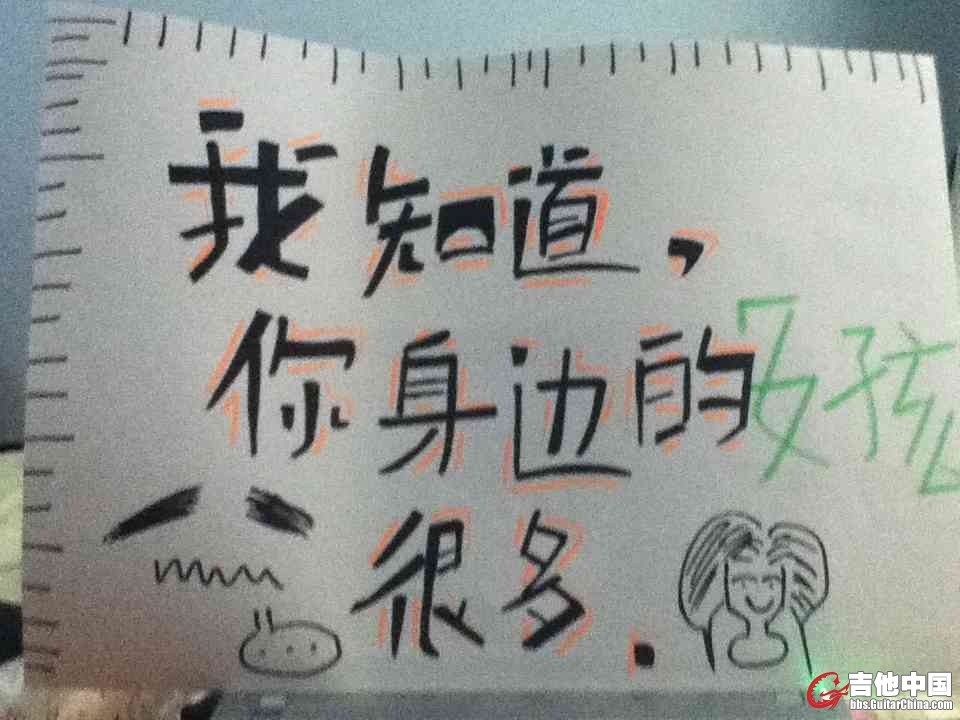 我知道,
你身边的女孩儿
很多.
吉他中国
bbs.GuitarChina.com